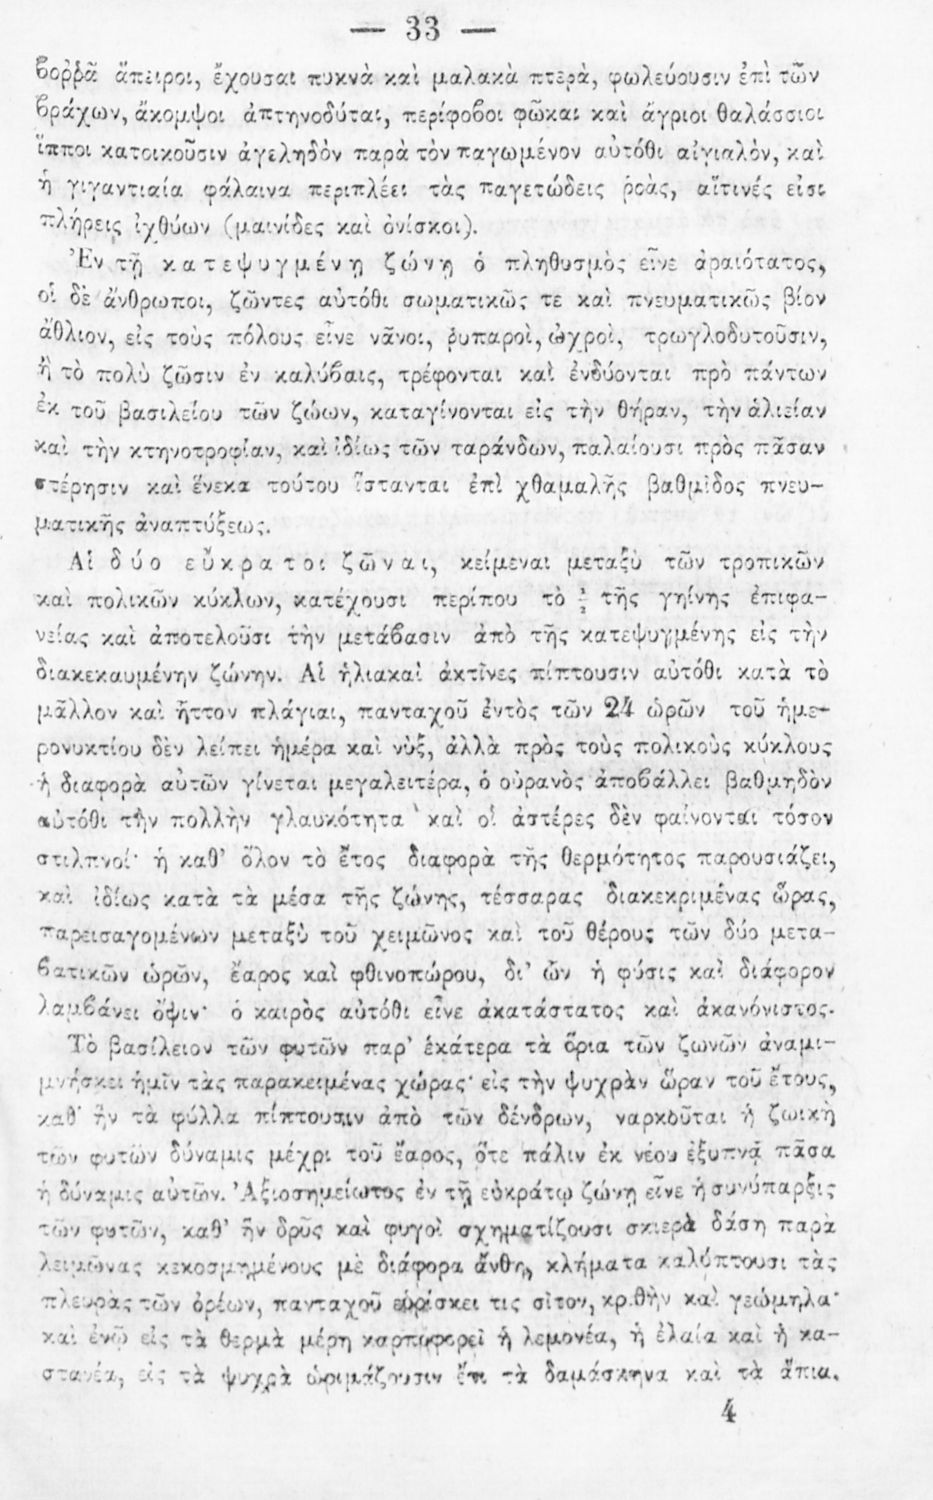 — 33 —
βορρᾶ ἄπειροι, ἔχουσαι πυκνὰ καὶ μαλακὰ πτερὰ, φωλεύουσιν ἐπὶ τῶν
βράχων, ἄκομψοι ἀπτηνοδύται, περίφοβοι φῶκαι καὶ ἄγριοι θαλάσσιοι
ἵπποι κατοικοῦσιν ἀγεληδὸν παρὰ τὸν παγωμένον αὐτόθι αἰγιαλὸν, καὶ
ἡ γιγαντιαία φάλαινα περιπλέει τὰς παγετώδεις ῥοὰς, αἵτινές εἰσι
πλήρεις ἰχθύων (μαινίδες καὶ ὀνίσκοι).
Ἐν τῇ κατεψυγμένῃ ζώνῃ ὁ πληθυσμὸς εἶνε ἀραιότατος,
οἱ δὲ ἄνθρωποι, ζῶντες αὐτόθι σωματικῶς τε καὶ πνευματικῶς βίον
ἄθλιον, εἰς τοὺς πόλους εἶνε νᾶνοι, ῥυπαροὶ, ὠχροὶ, τρωγλοδυτοῦσιν,
ἢ τὸ πολὺ ζῶσιν ἐν καλύβαις, τρέφονται καὶ ἐνδύονται πρὸ πάντων
ἐκ τοῦ βασιλείου τῶν ζώων, καταγίνονται εἰς τὴν θήραν, τὴν ἁλιείαν
καὶ τὴν κτηνοτροφίαν, καὶ ἰδίως τῶν ταράνδων, παλαίουσι πρὸς πᾶσαν
στέρησιν καὶ ἕνεκα τούτου ἵστανται ἐπὶ χθαμαλῆς βαθμῖδος πνευ-
ματικῆς ἀναπτύξεως.
Αἱ δύο εὔκρατοι ζῶναι, κείμεναι μεταξὺ τῶν τροπικῶν
καὶ πολικῶν κύκλων, κατέχουσι περίπου τὸ ½ τῆς γηίνης ἐπιφα-
νείας καὶ ἀποτελοῦσι τὴν μετάβασιν ἀπὸ τῆς κατεψυγμένης εἰς τὴν
διακεκαυμένην ζώνην. Αἱ ἡλιακαὶ ἀκτῖνες πίπτουσιν αὐτόθι κατὰ τὸ
μᾶλλον καὶ ἧττον πλάγιαι, πανταχοῦ ἐντὸς τῶν 24 ὡρῶν τοῦ ἡμε-
ρονυκτίου δὲν λείπει ἡμέρα καὶ νὺξ, ἀλλὰ πρὸς τοὺς πολικοὺς κύκλους
ἡ διαφορὰ αὐτῶν γίνεται μεγαλειτέρα, ὁ οὐρανὸς ἀποβάλλει βαθμηδὸν
αὐτόθι τὴν πολλὴν γλαυκότητα καὶ οἱ ἀστέρες δὲν φαίνονται τόσον
στιλπνοί· ἡ καθ’ ὅλον τὸ ἔτος διαφορὰ τῆς θερμότητος παρουσιάζει,
καὶ ἰδίως κατὰ τὰ μέσα τῆς ζώνης, τέσσαρας διακεκριμένας ὥρας,
παρεισαγομένων μεταξὺ τοῦ χειμῶνος καὶ τοῦ θέρους τῶν δύο μετα-
βατικῶν ὡρῶν, ἔαρος καὶ φθινοπώρου, δι’ ὧν ἡ φύσις καὶ διάφορον
λαμβάνει ὄψιν· ὁ καιρὸς αὐτόθι εἶνε ἀκατάστατος καὶ ἀκανόνιστος.
Τὸ βασίλειον τῶν φυτῶν παρ’ ἑκάτερα τὰ ὅρια τῶν ζωνῶν ἀναμι-
μνήσκει ἡμῖν τὰς παρακειμένας χώρας· εἰς τὴν ψυχρὰν ὥραν τοῦ ἔτους,
καθ’ ἣν τὰ φύλλα πίπτουσιν ἀπὸ τῶν δένδρων, ναρκοῦται ἡ ζωικὴ
τῶν φυτῶν δύναμις μέχρι τοῦ ἔαρος, ὅτε πάλιν ἐκ νέου ἐξυπνᾷ πᾶσα
ἡ δύναμις αὐτῶν. Ἀξιοσημείωτος ἐν τῇ εὐκράτῳ ζώνῃ εἶνε ἡ συνύπαρξις
τῶν φυτῶν, καθ’ ἣν δρῦς καὶ φυγοὶ σχηματίζουσι σκιερὰ δάση παρὰ
λειμῶνας κεκοσμημένους μὲ διάφορα ἄνθη, κλήματα καλύπτουσι τὰς
πλευρὰς τῶν ὀρέων, πανταχοῦ εὑρίσκει τις σῖτον, κριθὴν καὶ γεώμηλα·
καὶ ἐνῷ εἰς τὰ θερμὰ μέρη καρποφορεῖ ἡ λεμονέα, ἡ ἐλαία καὶ ἡ κα-
στανέα, εἰς τὰ ψυχρὰ ὡριμάζουσιν ἔτι τὰ δαμάσκηνα καὶ τὰ ἄπια.
4